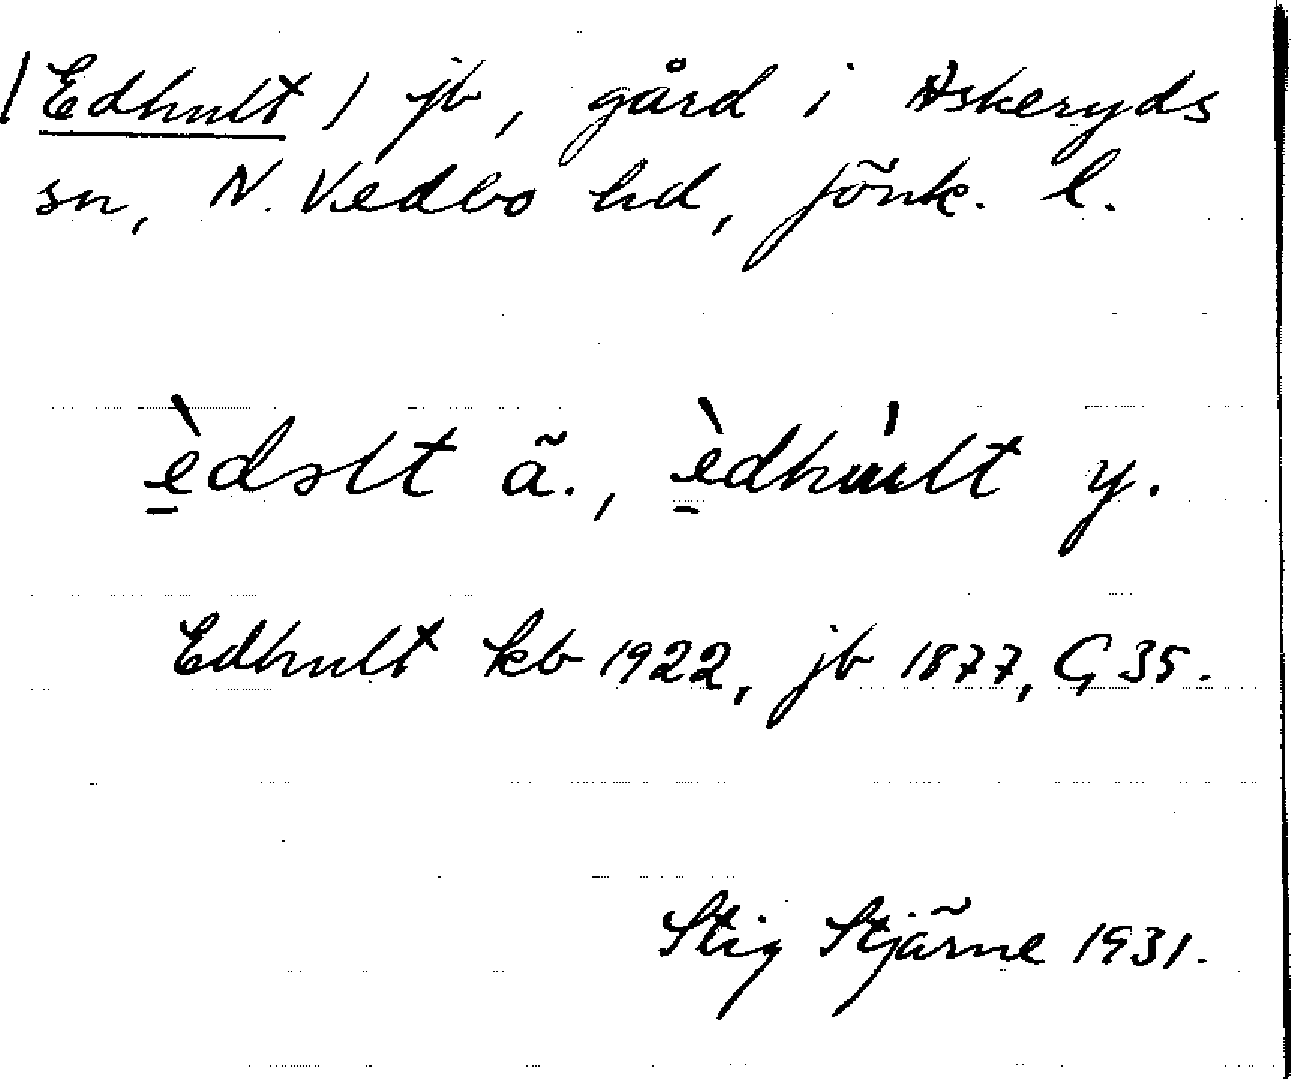 /Edhult/ jb, gård i Askeryds
sn, N. Vedbo hd, Jönk. l.
èdslt ä., èdhu̍lt y.
Edhult kb 1922, jb 1877, G 35.
Stig Stjärne 1931.